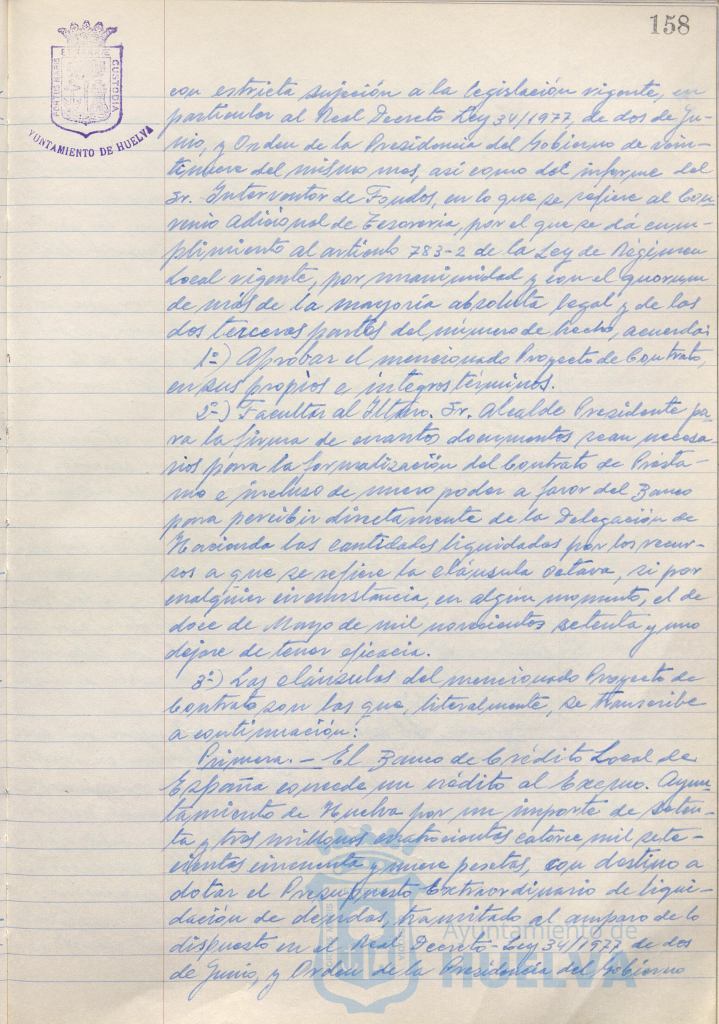 158
PORTUS MARIS ET TERRAE CUSTODIA
AYUNTAMIENTO DE HUELVA
con estricta sujeción a la legislación vigente, en
particular al Real Decreto Ley 34/1977, de dos de Ju-
nio, y Orden de la Presidencia del Gobierno de vein-
tinueve del mismo mes, así como del informe del
Sr. Interventor de Fondos, en lo que se refiere al Con-
venio adicional de Tesorería, por el que se dá cum-
plimiento al artículo 783-2 de la Ley de Régimen
Local vigente, por unanimidad y con el quorum
de más de la mayoría absoluta legal y de las
dos terceras partes del número de hecho, acuerda:
1º-) Aprobar el mencionado Proyecto de Contrato,
en sus propios e integros términos.
2º-) Facultar al Iltmo. Sr. Alcalde Presidente pa-
ra la firma de cuantos documentos sean necesa-
rios para la formalización del Contrato de Présta-
mo e incluso de nuevo poder a favor del Banco
para percibir directamente de la Delegación de
Hacienda las cantidades liquidadas por los recur-
sos a que se refiere la cláusula octava, si por
cualquier circunstancia, en algún momento, el de
doce de Mayo de mil novecientos setenta y uno
dejare de tener eficacia.
3º-) Las cláusulas del mencionado Proyecto de
Contrato son las que, literalmente, se transcribe
a continuación:
Primera. - El Banco de Crédito Local de
España concede un crédito al Excmo. Ayun-
tamiento de Huelva por un importe de seten-
ta y tres millones cuatrocientas catorce mil sete-
cientas cincuenta y nueve pesetas, con destino a
dotar el Presupuesto Extraordinario de liqui-
dación de deudas, tramitado al amparo de lo
dispuesto en el Real Decreto-Ley 34/1977 de dos
de Junio, y Orden de la Presidencia del Gobierno
Ayuntamiento de
HUELVA